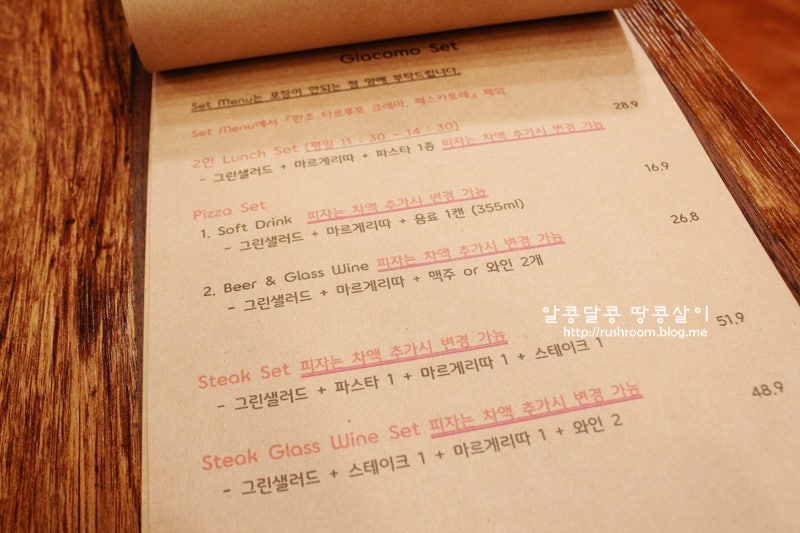 Giacomo Set
Set Menu는 포장이 안되는 점 양해 부탁드립니다.
Set Menu에서 『만조 타르투포 크레마, 페스카토레』 제외
2인 Lunch Set (평일 11 : 30 - 14 : 30) 28.9
- 그린샐러드 + 마르게리따 + 파스타 1종 피자는 차액 추가시 변경 가능
Pizza Set 16.9
1. Soft Drink 피자는 차액 추가시 변경 가능
- 그린샐러드 + 마르게리따 + 음료 1캔 (355ml)
2. Beer & Glass Wine 피자는 차액 추가시 변경 가능 26.8
- 그린샐러드 + 마르게리따 + 맥주 or 와인 2개
알콩달콩 땅콩살이
http://rushroom.blog.me
Steak Set 피자는 차액 추가시 변경 가능 51.9
- 그린샐러드 + 파스타 1 + 마르게리따 1 + 스테이크 1
Steak Glass Wine Set 피자는 차액 추가시 변경 가능 48.9
- 그린샐러드 + 스테이크 1 + 마르게리따 1 + 와인 2